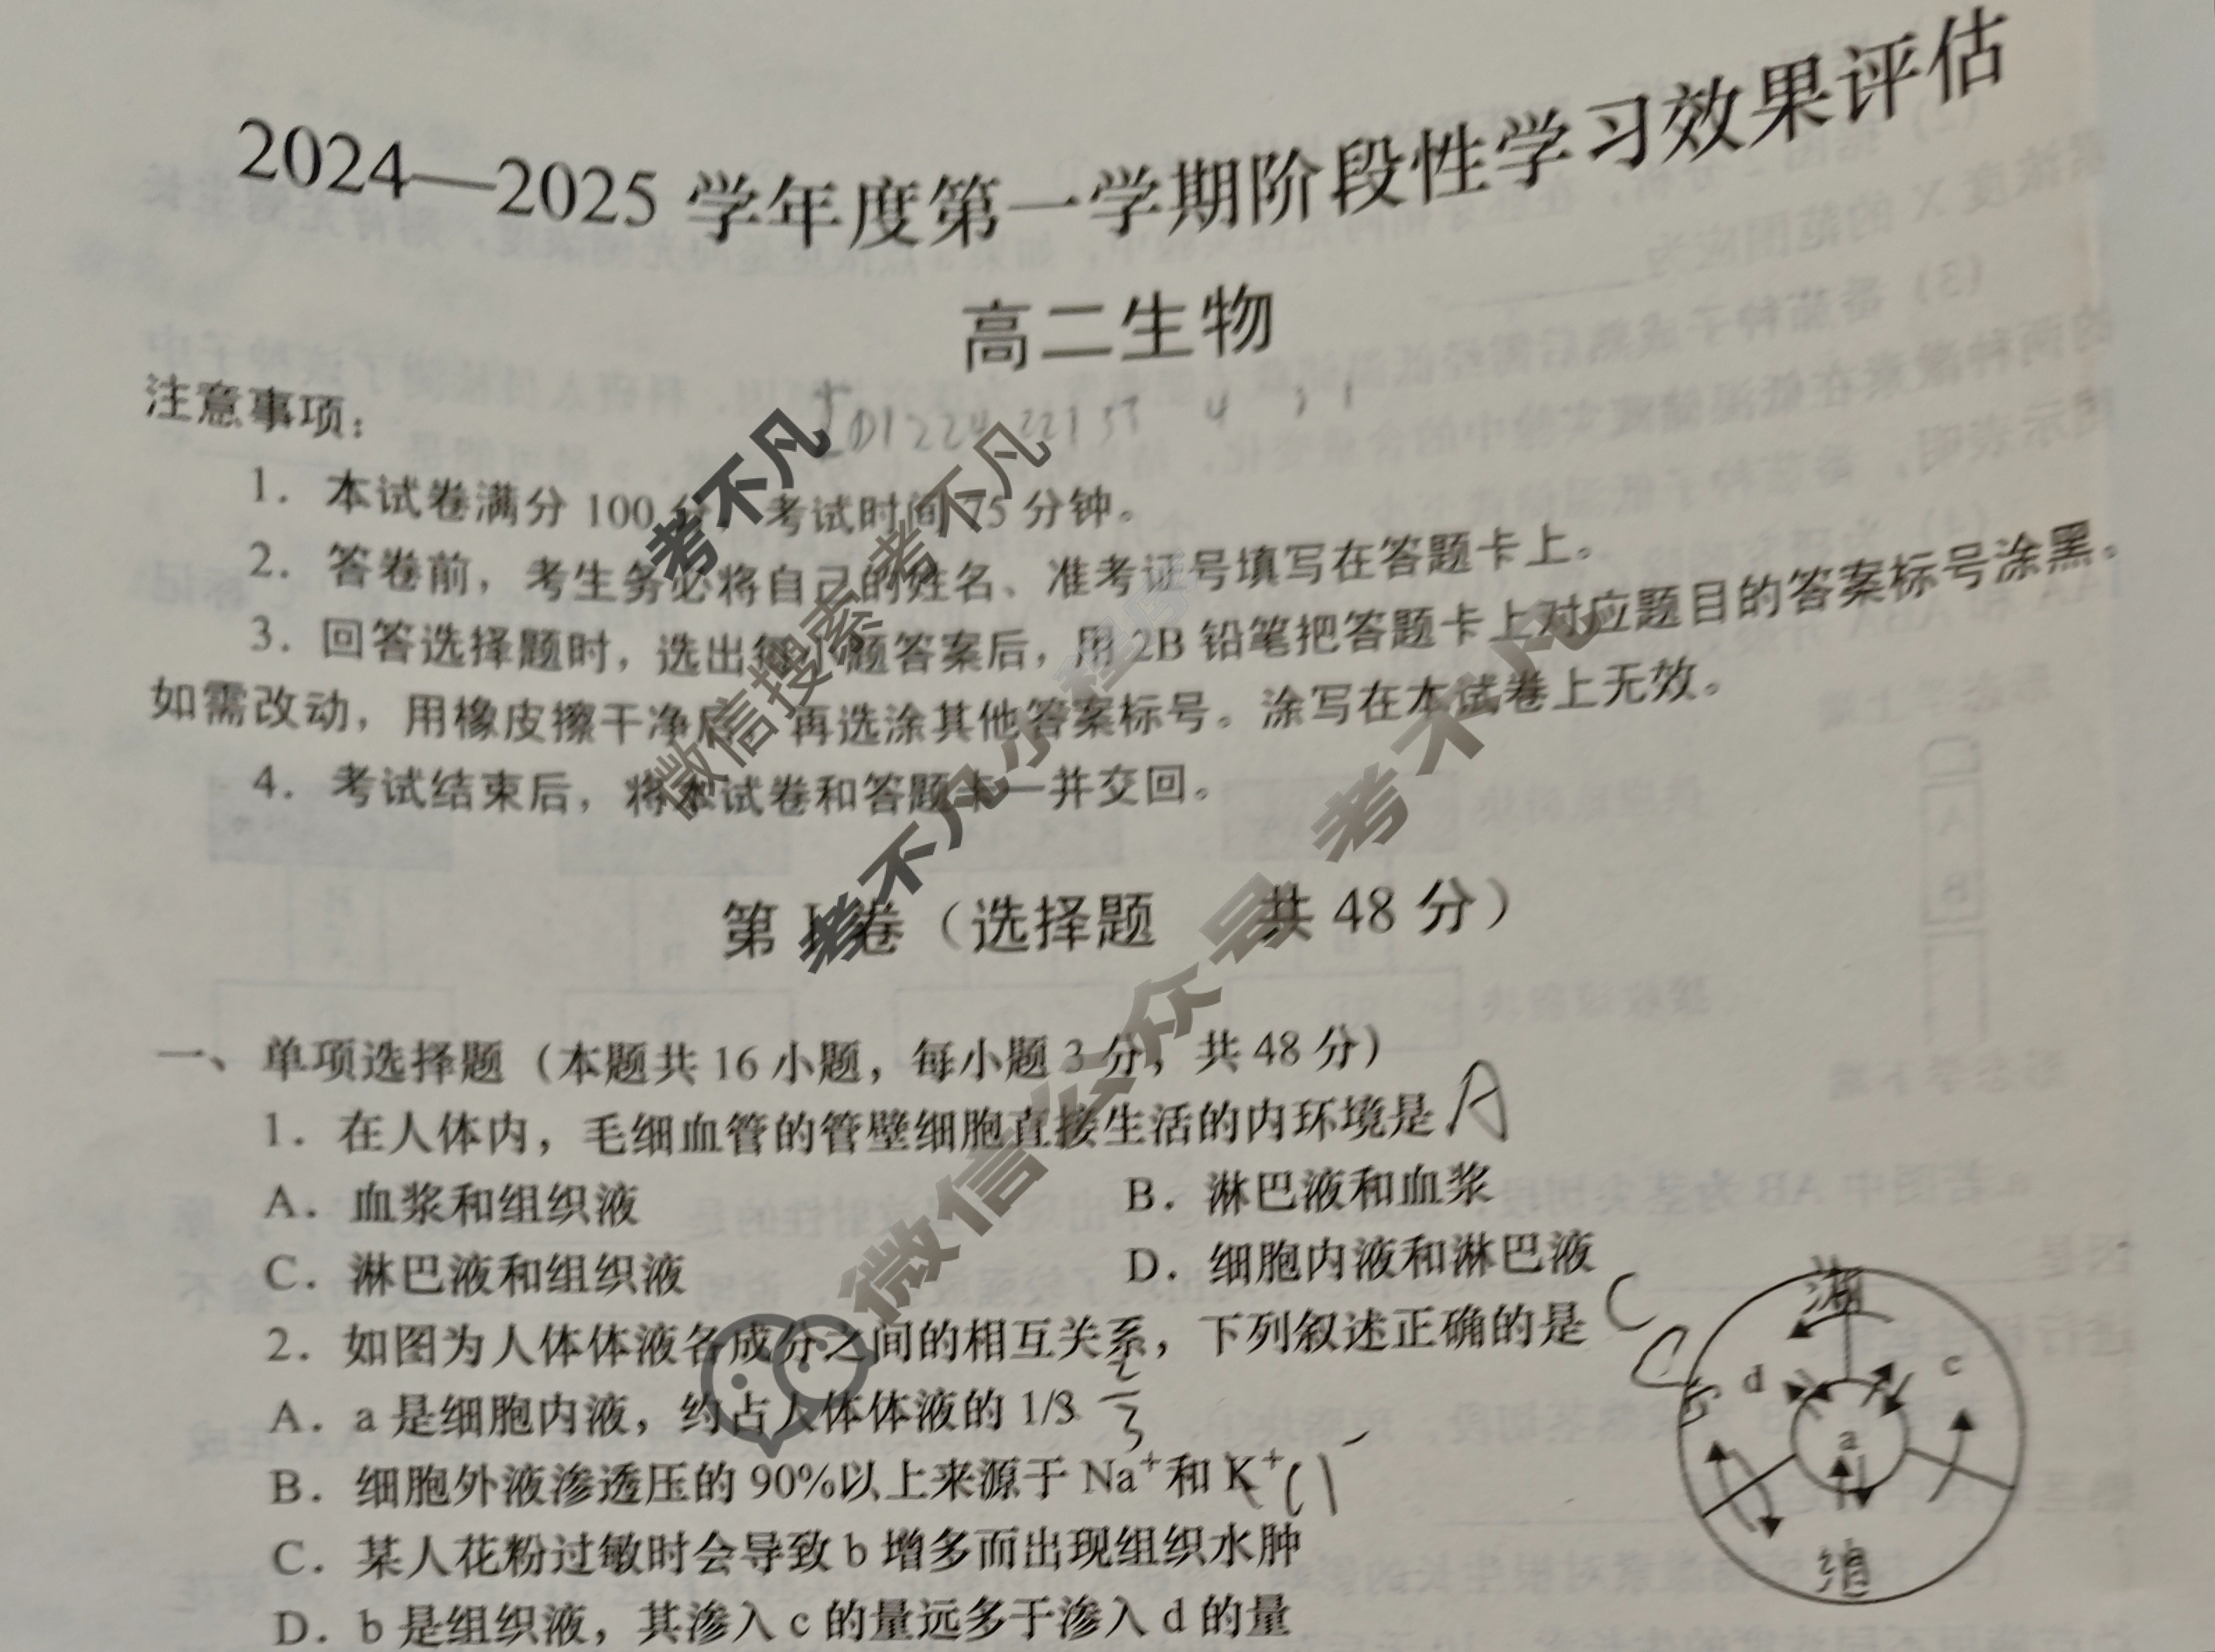 2024—2025 学年度第一学期阶段性学习效果评估
高二生物
注意事项：
1．本试卷满分 100 分，考试时间 75 分钟。
2．答卷前，考生务必将自己的姓名、准考证号填写在答题卡上。
3．回答选择题时，选出每小题答案后，用 2B 铅笔把答题卡上对应题目的答案标号涂黑。
如需改动，用橡皮擦干净后，再选涂其他答案标号。涂写在本试卷上无效。
4．考试结束后，将本试卷和答题卡一并交回。
考不凡
考不凡
微信搜索
考不凡小程序
微信公众号 考不凡
第 I 卷（选择题 共 48 分）
一、单项选择题（本题共 16 小题，每小题 3 分，共 48 分）
1．在人体内，毛细血管的管壁细胞直接生活的内环境是 A
A．血浆和组织液 B．淋巴液和血浆
C．淋巴液和组织液 D．细胞内液和淋巴液
2．如图为人体体液各成分之间的相互关系，下列叙述正确的是 C
A．a 是细胞内液，约占人体体液的 1/3 2/3
B．细胞外液渗透压的 90%以上来源于 Na⁺和 K⁺ Cl⁻
C．某人花粉过敏时会导致 b 增多而出现组织水肿
D．b 是组织液，其渗入 c 的量远多于渗入 d 的量
d c
a
组